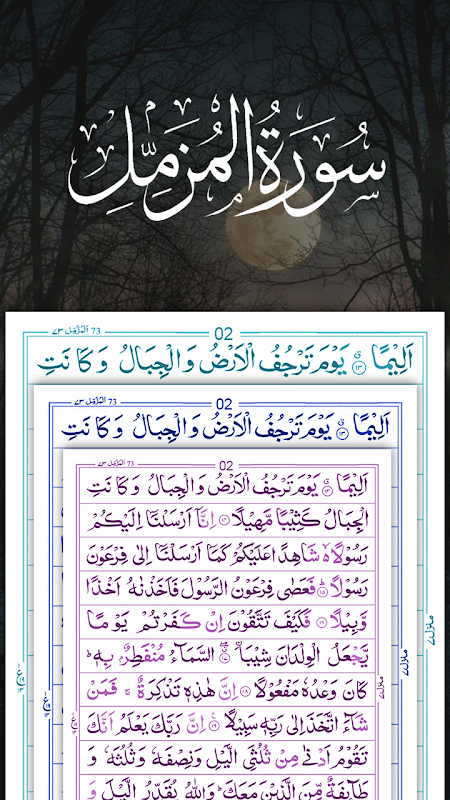 سُورَةُ الْمُزَّمِّلِ
73 اَلْمُزَّمِّل ٧٣
02
اَلِيْمًا ۟ۙ ۱۳ يَوْمَ تَرْجُفُ الْاَرْضُ وَالْجِبَالُ وَكَانَتِ
73 اَلْمُزَّمِّل ٧٣
02
اَلِيْمًا ۟ۙ ۱۳ يَوْمَ تَرْجُفُ الْاَرْضُ وَالْجِبَالُ وَكَانَتِ
73 اَلْمُزَّمِّل ٧٣
02
اَلِيْمًا ۟ۙ ۱۳ يَوْمَ تَرْجُفُ الْاَرْضُ وَالْجِبَالُ وَكَانَتِ
الْجِبَالُ كَثِيْبًا مَّهِيْلًا ۱۴ اِنَّاۤ اَرْسَلْنَاۤ اِلَيْكُمْ
رَسُوْلًا ۙ شَاهِدًا عَلَيْكُمْ كَمَاۤ اَرْسَلْنَاۤ اِلٰى فِرْعَوْنَ
رَسُوْلًا ۱۵ فَعَصٰى فِرْعَوْنُ الرَّسُوْلَ فَاَخَذْنٰهُ اَخْذًا
وَّبِيْلًا ۱۶ فَكَيْفَ تَتَّقُوْنَ اِنْ كَفَرْتُمْ يَوْمًا
يَّجْعَلُ الْوِلْدَانَ شِيْبَا ۱۷ اۨلسَّمَآءُ مُنْفَطِرٌۢ بِهٖ ؕ
كَانَ وَعْدُهٗ مَفْعُوْلًا ۱۸ اِنَّ هٰذِهٖ تَذْكِرَةٌ ۚ فَمَنْ
شَآءَ اتَّخَذَ اِلٰى رَبِّهٖ سَبِيْلًا ۱۹ اِنَّ رَبَّكَ يَعْلَمُ اَنَّكَ
تَقُوْمُ اَدْنٰى مِنْ ثُلُثَىِ الَّيْلِ وَنِصْفَهٗ وَثُلُثَهٗ وَ
طَآئِفَةٌ مِّنَ الَّذِيْنَ مَعَكَ ؕ وَاللّٰهُ يُقَدِّرُ الَّيْلَ وَ
منزل ٧
منزل ٧
منزل ٧